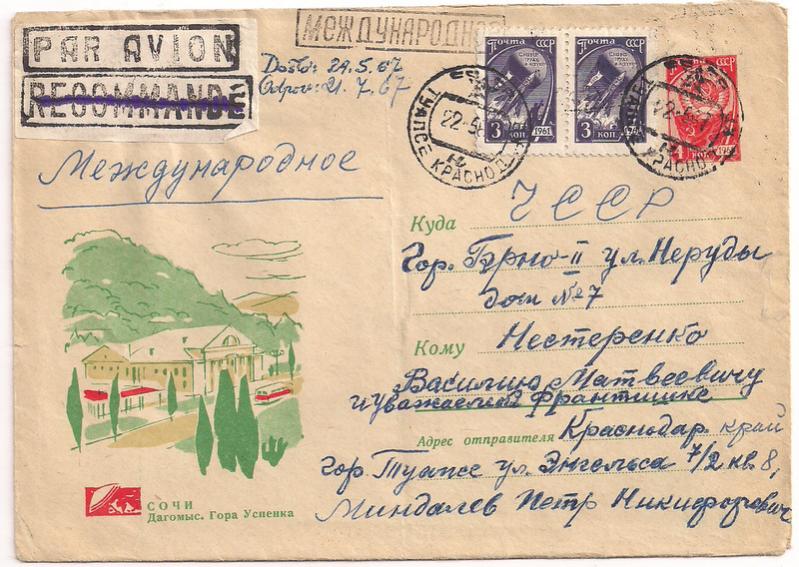 PAR AVION
RECOMMANDÉ
МЕЖДУНАРОДНОЕ
Došlo: 29.5.67
Odpov: 21.7.67
Международное
ПОЧТА СССР
3 КОП. 1961
ПОЧТА СССР
3 КОП.
ТУАПСЕ КРАСНОД
22-5
Куда ЧССР
гор. Бърно-II ул. Неруды
дом №7
Кому Нестеренко
Василию Матвеевичу
и уважаемой Франтишке
Адрес отправителя Краснодар. край
гор. Туапсе ул. Энгельса 7/2 кв. 8,
Миндалев Петр Никифорович
СОЧИ
Дагомыс. Гора Успенка